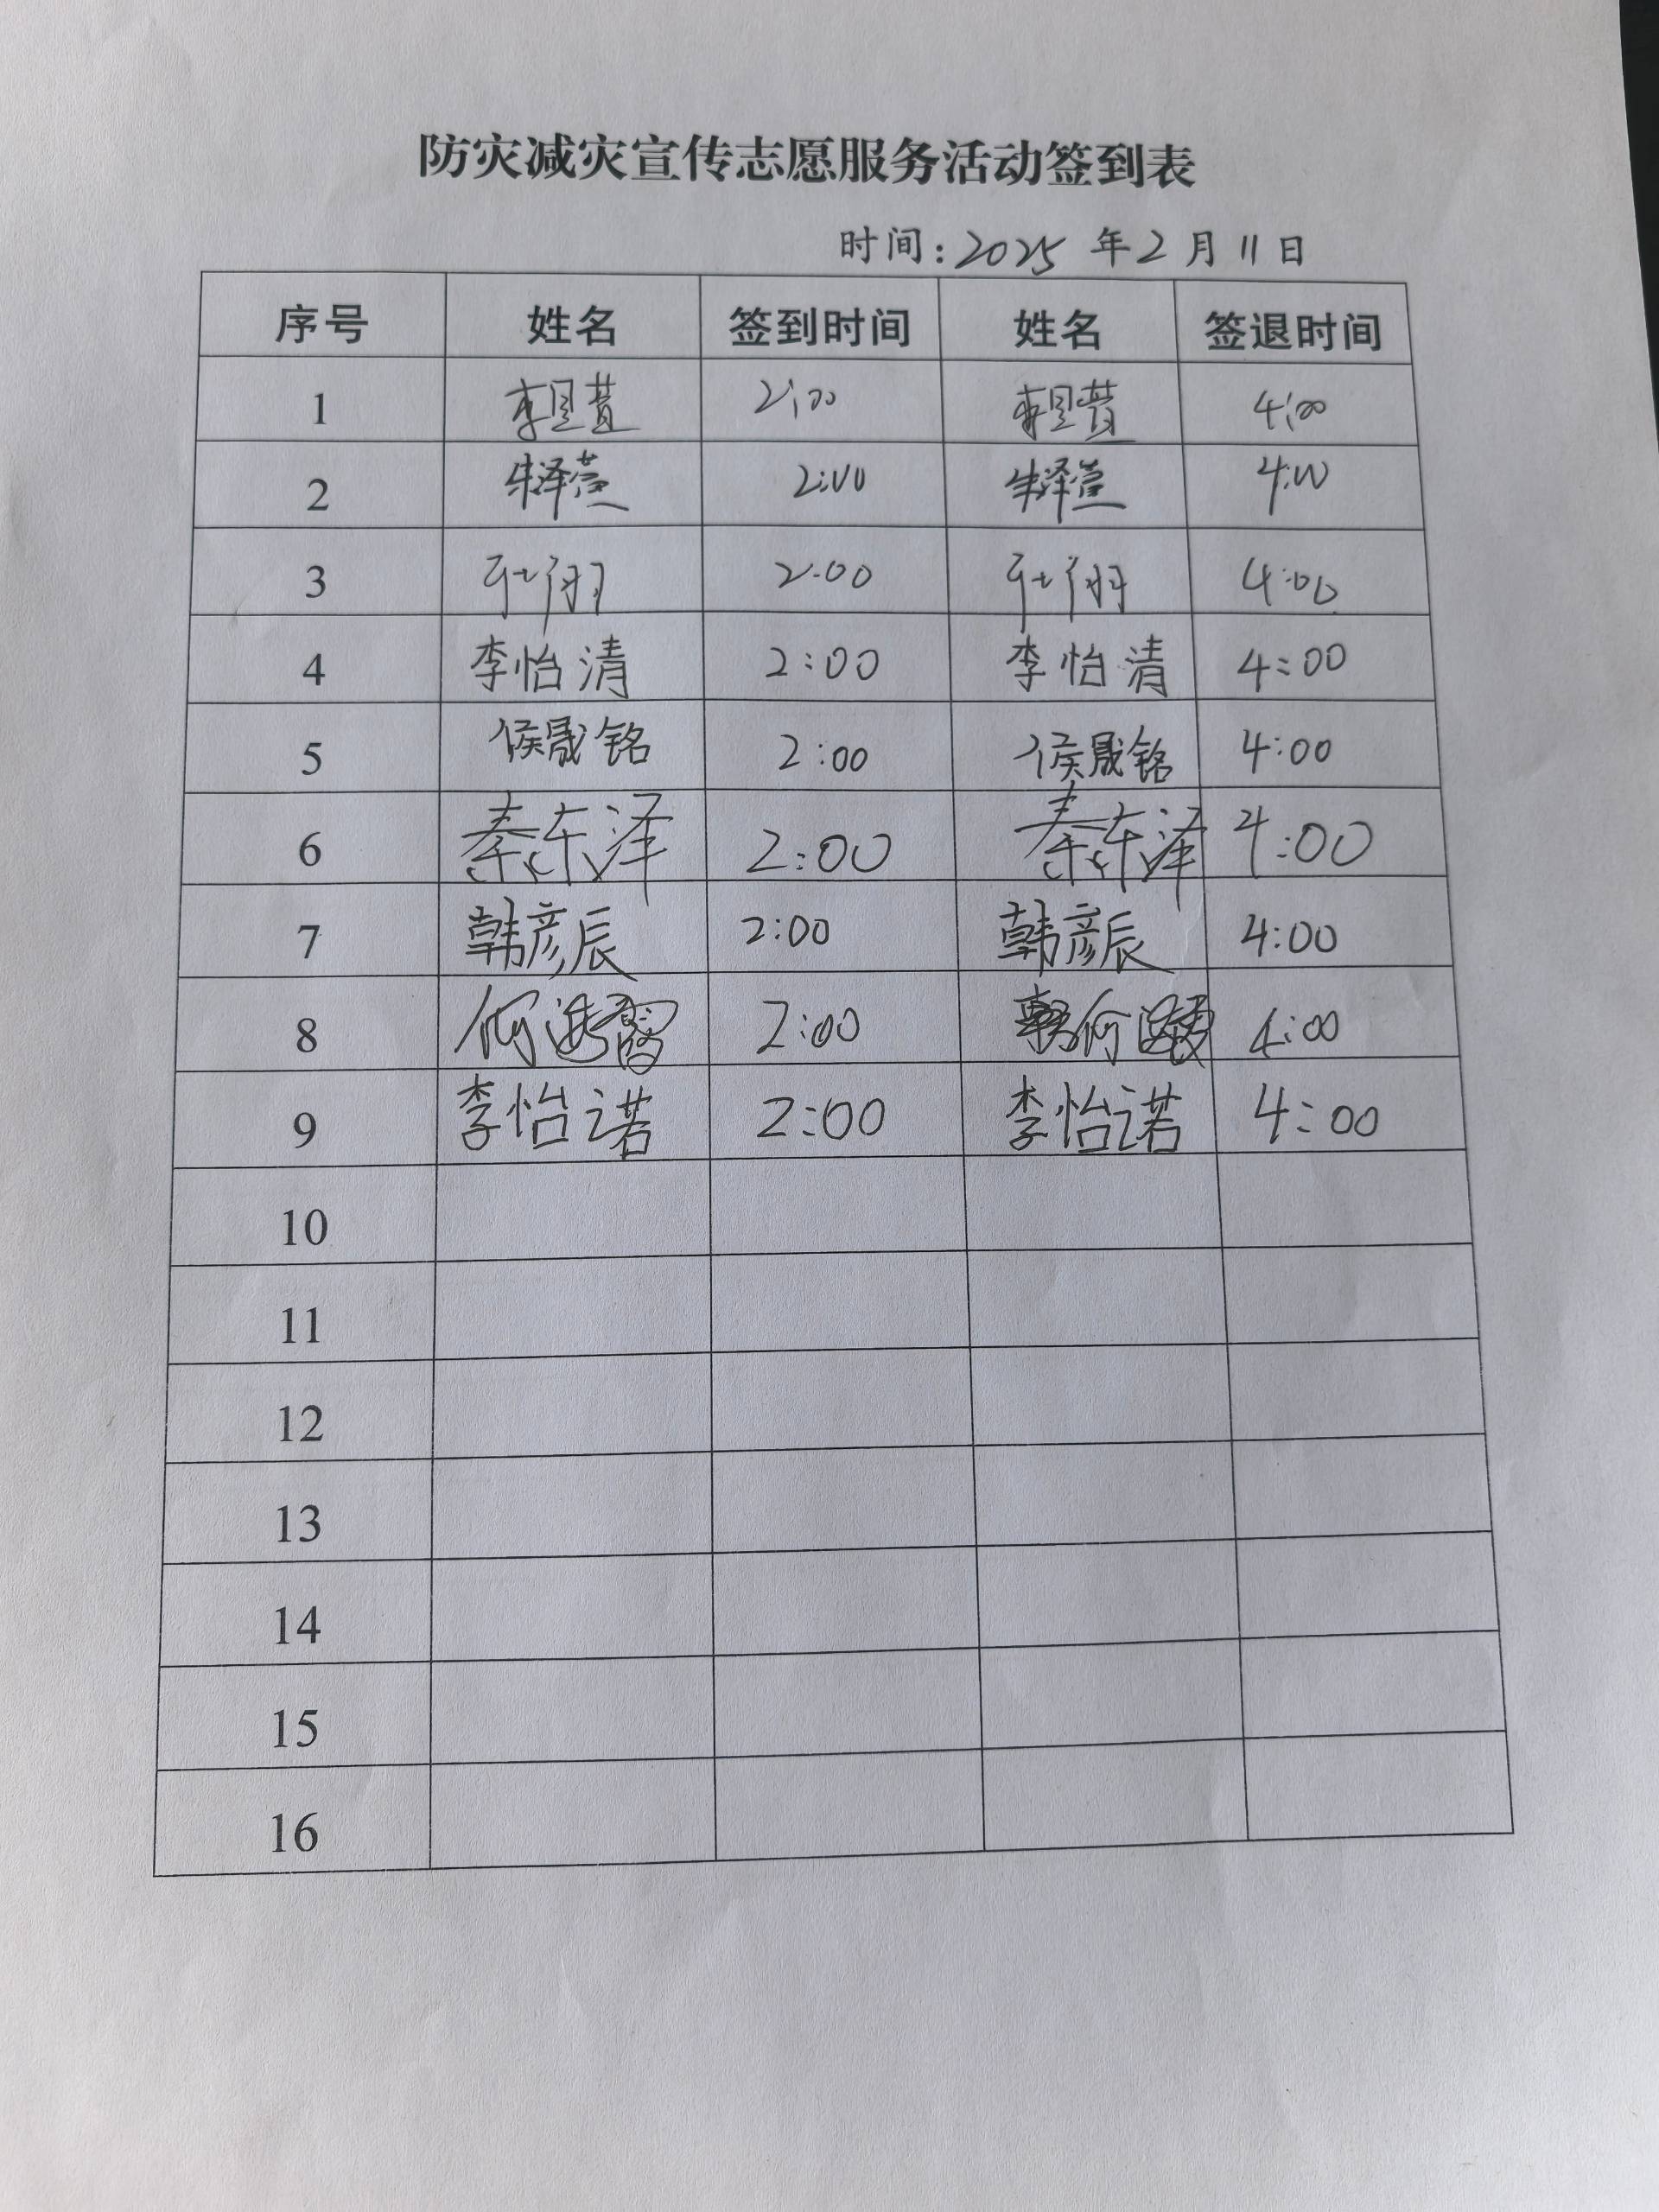 防灾减灾宣传志愿服务活动签到表
时间：2025 年 2 月 11 日
序号 姓名 签到时间 姓名 签退时间
1 2:00 4:00
2 朱泽萱 2:00 朱泽萱 4:00
3 2:00 4:00
4 李怡清 2:00 李怡清 4:00
5 侯晟铭 2:00 侯晟铭 4:00
6 秦东泽 2:00 秦东泽 4:00
7 韩彦辰 2:00 韩彦辰 4:00
8 何 2:00 何 4:00
9 李怡诺 2:00 李怡诺 4:00
10
11
12
13
14
15
16